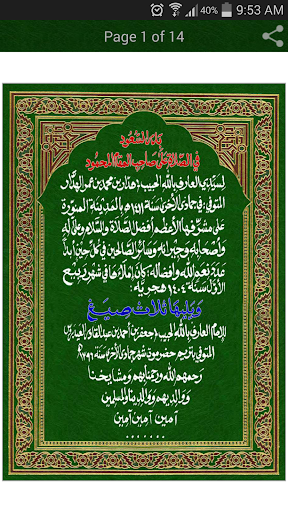 40% 9:53 AM
Page 1 of 14
بلغ المقصود
في الصلاة على صاحب المقام المحمود
لسيدي العارف بالله الحبيب هدار بن محمد بن عمر الهدار
المتوفى في جمادى الأخرى سنة ١٤١١ه بالمدينة المنورة
على مشرفها الأعظم أفضل الصلاة والسلام وعلى آله
وأصحابه وجيرانه وسائر الصالحين في كل حين أبدا
عدد نعم الله وأفضاله كان إملاءها في شهر ربيع
الأول سنة ١٤٠٤ هجرية
ويليها ثلاث صيغ
للإمام العارف بالله الحبيب جعفر بن أحمد بن عبدالقادر العيدروس
المتوفى بتريم حضرموت شهر جمادى الأخرى سنة
رحمهم الله ورحمنا بهم ومشايخنا
ووالديهم ووالدينا والمسلمين
آمين آمين آمين